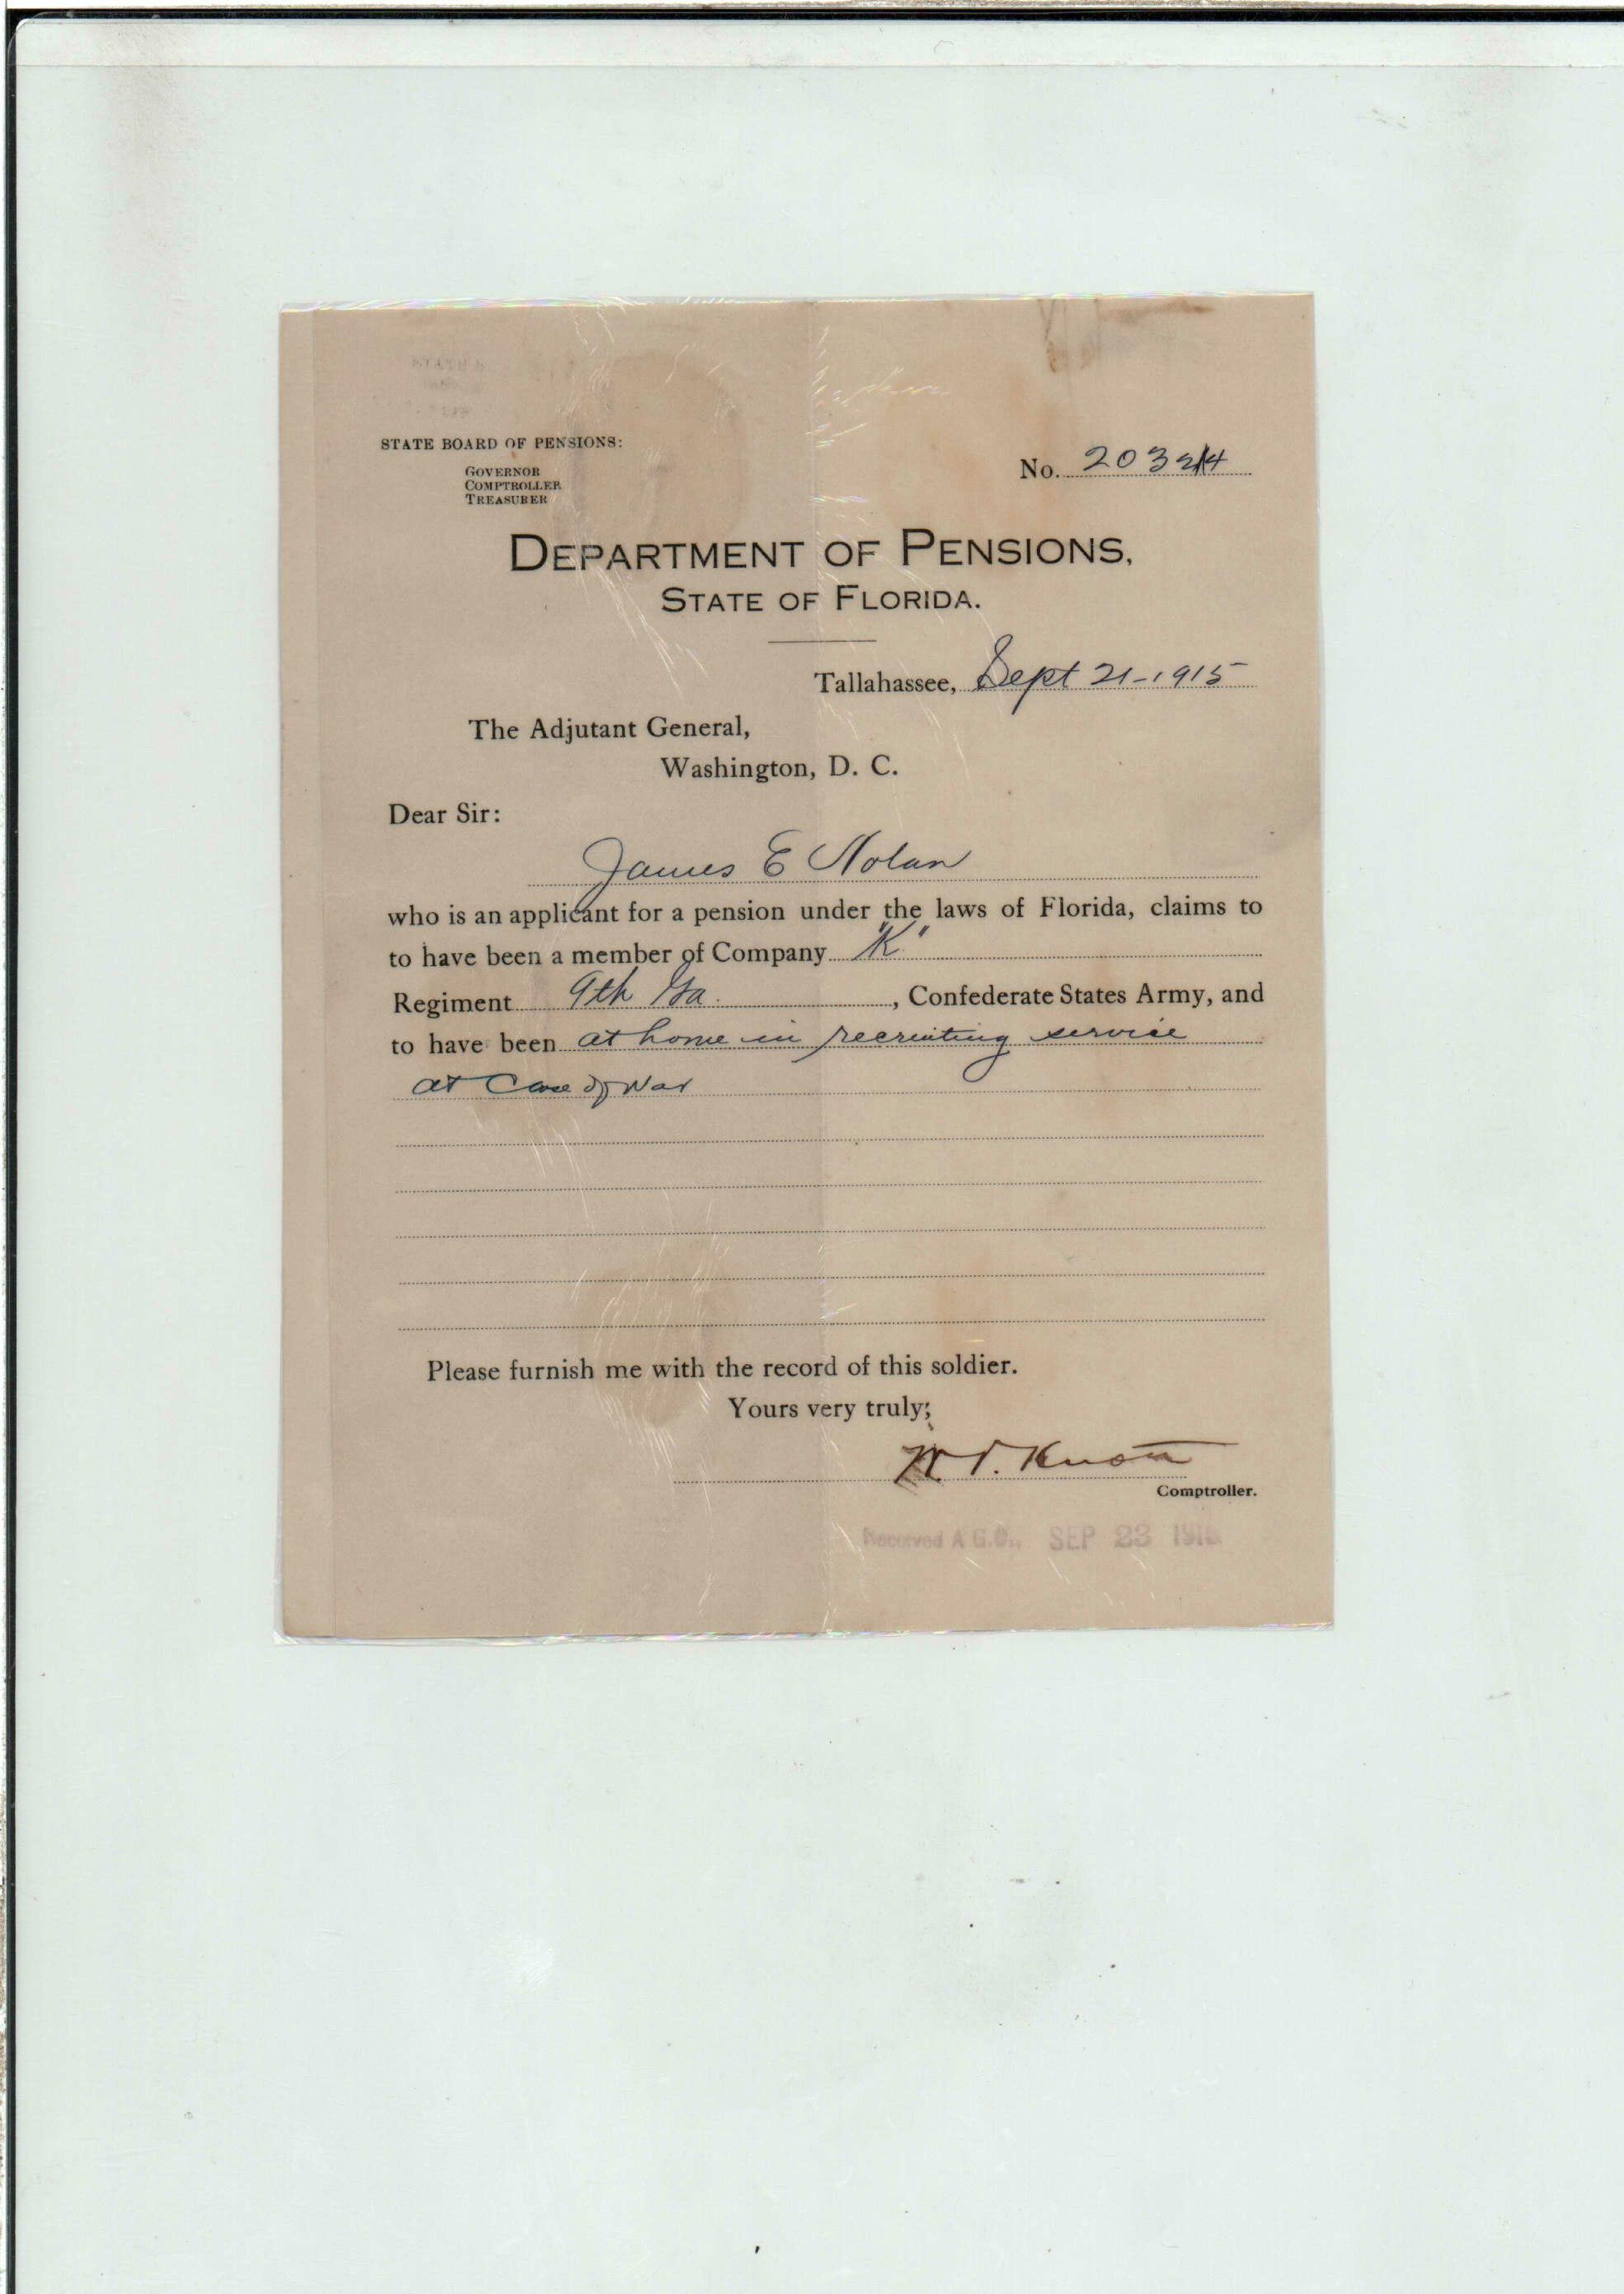 STATE BOARD OF PENSIONS:
GOVERNOR
COMPTROLLER
TREASURER
No.
DEPARTMENT OF PENSIONS,
STATE OF FLORIDA.
Tallahassee, Sept 21-1915
The Adjutant General,
Washington, D. C.
Dear Sir:
James E Nolan
who is an applicant for a pension under the laws of Florida, claims to
to have been a member of Company "K"
Regiment 9th Ga. , Confederate States Army, and
to have been at home in recruiting service
at Close of War
Please furnish me with the record of this soldier.
Yours very truly,
W. V. Knott
Comptroller.
Received A.G.O., SEP 23 1915